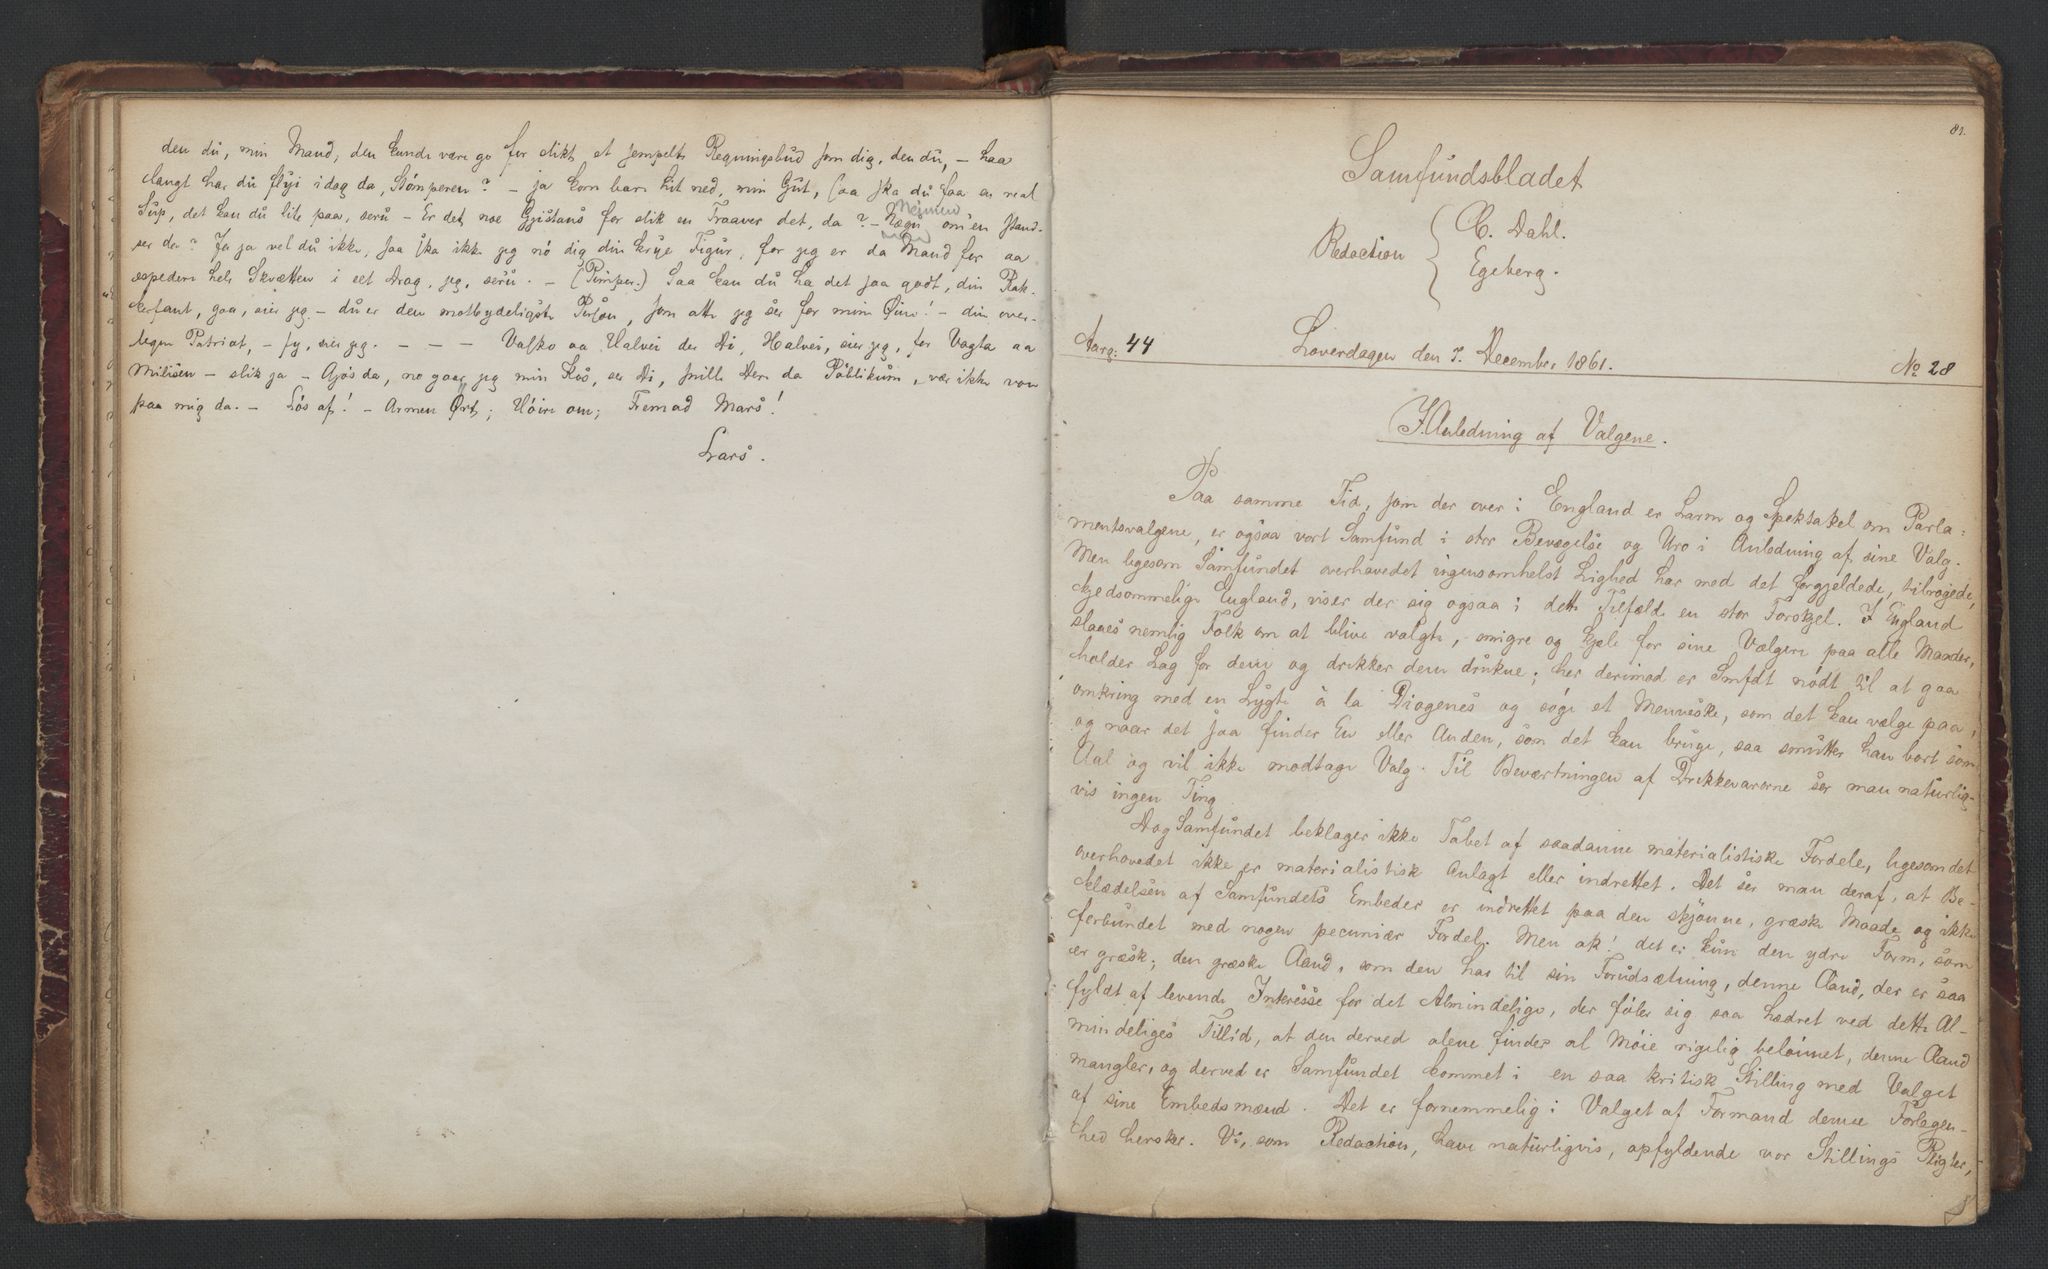 den du, min Mand, den kunde være go for slikt et simpelt Regningsbud som dig, den du, – haa
langt har du flyi idag da, Stómperen? – ja kom bare hit ned, min Gut, saa ska du faa en real
Sup, det kan du lite paa, seru – Er det noe Gjistans for slik en Traaver det, da? – Nægu om en Stand-
Neimen
ser da? Ja ja vel du ikke, saa ska ikke jeg nó dig din krye Figur, for jeg er da Mand for aa
expedere hele Skvætten i eet Drag, jeg, seru. – (Pimper.) Saa kan du ha det saa godt, din Rak-
kerfant, gaa, sier jeg – du er den motbydeligste Person, som atte jeg ser for mine Øine! – din over-
legne Patriot, – fy, sier jeg. – – – Valsko aa Halvei der Di, Halvei, sier jeg, for Vagta aa
Milisen – slik ja – Ajós da, no gaar jeg min Kós, ser Di, snille Dere da Públikum, vær ikke von
paa mig da. – Lós af! – Armen Ørt; Hóire om; Fremad Mars!
Lars.
81.
Samfundsbladet
Redaction { C. Dahl.
Egeberg.
Aarg: 44 Loverdagen den 7. December 1861. No 28
I Anledning af Valgene.
Paa samme Tid, som der over i England er Larm og Spektakel om Parla-
mentsvalgene, er ogsaa vort Samfund i stor Bevægelse og Uro i Anledning af sine Valg.
Men ligesom Samfundet overhovedet ingensomhelst Lighed har med det forgjeldede, tilrøgede,
kjedsommelige England, viser der sig ogsaa i dette Tilfælde en stor Forskjel. I England
slaaes nemlig Folk om at blive valgte, smigre og kjæle for sine Vælgere paa alle Maader,
holder Lag for dem og drikker dem drukne; her derimod er Smfdt nødt til at gaa
omkring med en Lygte à la Diogenes og søge et Menneske, som det kan vælge paa,
og naar det saa finder En eller Anden, som det kan bruge, saa smutter han bort som
Aal og vil ikke modtage Valg. Til Beværtningen af Drikkevarerne ser man naturlig-
vis ingen Ting.
Dog Samfundet beklager ikke Tabet af saadanne materialistiske Fordele, ligesom det
overhovedet ikke er materialistisk anlagt eller indrettet. Det ser man deraf, at Be-
klædelsen af Samfundets Embeder er indrettet paa den skjønne, græske Maade og ikke
forbundet med nogen pecuniær Fordel. Men ak! det er kun den ydre Form, som
er græsk; den græske Aand, som den har til sin Forudsætning, denne Aand, der er saa
fyldt af levende Interesse for det Almindelige, der føler sig saa hædret ved dette Al-
mindeliges Tillid, at den derved alene finder al Møie rigelig belønnet, denne Aand
mangler, og derved er Samfundet kommet i en saa kritisk Stilling med Valget
af sine Embedsmænd. Det er fornemmelig i Valget af Formand denne Forlegen-
hed hersker. Vi, som Redaction, have naturligvis, opfyldende vor Stillings Pligter,